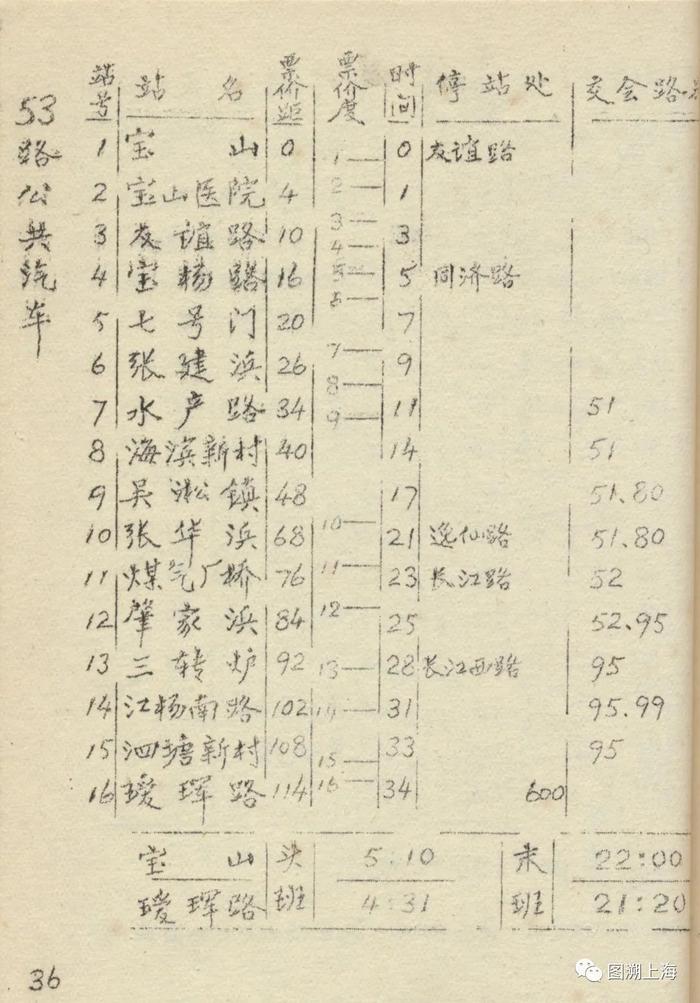 53路公共汽车
站号 站名 票价距 票价度 时间 停站处 交会路
1 宝山 0 1 0 友谊路
2 宝山医院 4 2 1
3 友谊路 10 3 4 3
4 宝杨路 16 5 6 5 同济路
5 七号门 20 7
6 张建浜 26 7 9
7 水产路 34 8 9 11 51
8 海滨新村 40 14 51
9 吴淞镇 48 17 51.80
10 张华浜 68 10 21 逸仙路 51.80
11 煤气厂桥 76 11 23 长江路 52
12 肇家浜 84 12 25 52.95
13 三转炉 92 13 28 长江西路 95
14 江杨南路 102 14 31 95.99
15 泗塘新村 108 15 33 95
16 瑷珲路 114 16 34 600
宝山 头班 5:10 末班 22:00
瑷珲路 4:31 21:20
36
图溯上海